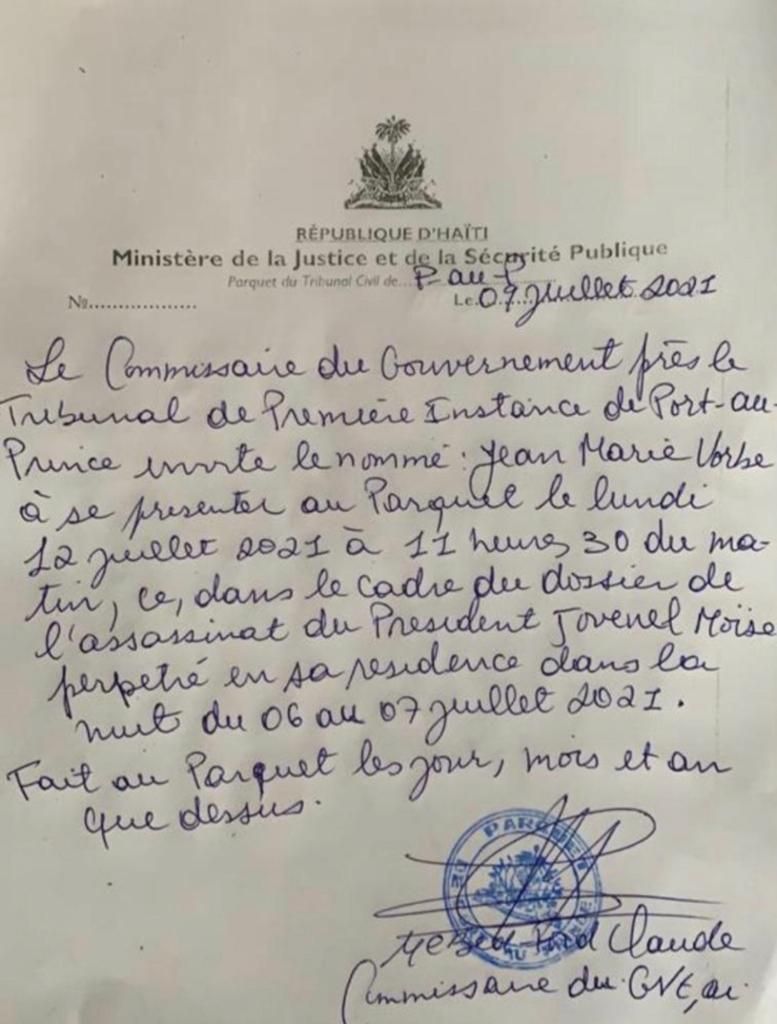 RÉPUBLIQUE D'HAÏTI
Ministère de la Justice et de la Sécurité Publique
Parquet du Tribunal Civil de...P-au-P
No..................
Le.07 juillet 2021
Le Commissaire du Gouvernement près le
Tribunal de Première Instance de Port-au-
Prince invite le nommé : Jean Marie Vorbe
à se presenter au Parquet le lundi
12 juillet 2021 à 11 heures 30 du ma-
tin, ce, dans le cadre du dossier de
l'assassinat du President Jovenel Moïse
perpetré en sa residence dans la
nuit du 06 au 07 juillet 2021.
Fait au Parquet les jour, mois et an
que dessus.
PARQUET
DE
AU
Claude
Commissaire du GVt, ai.